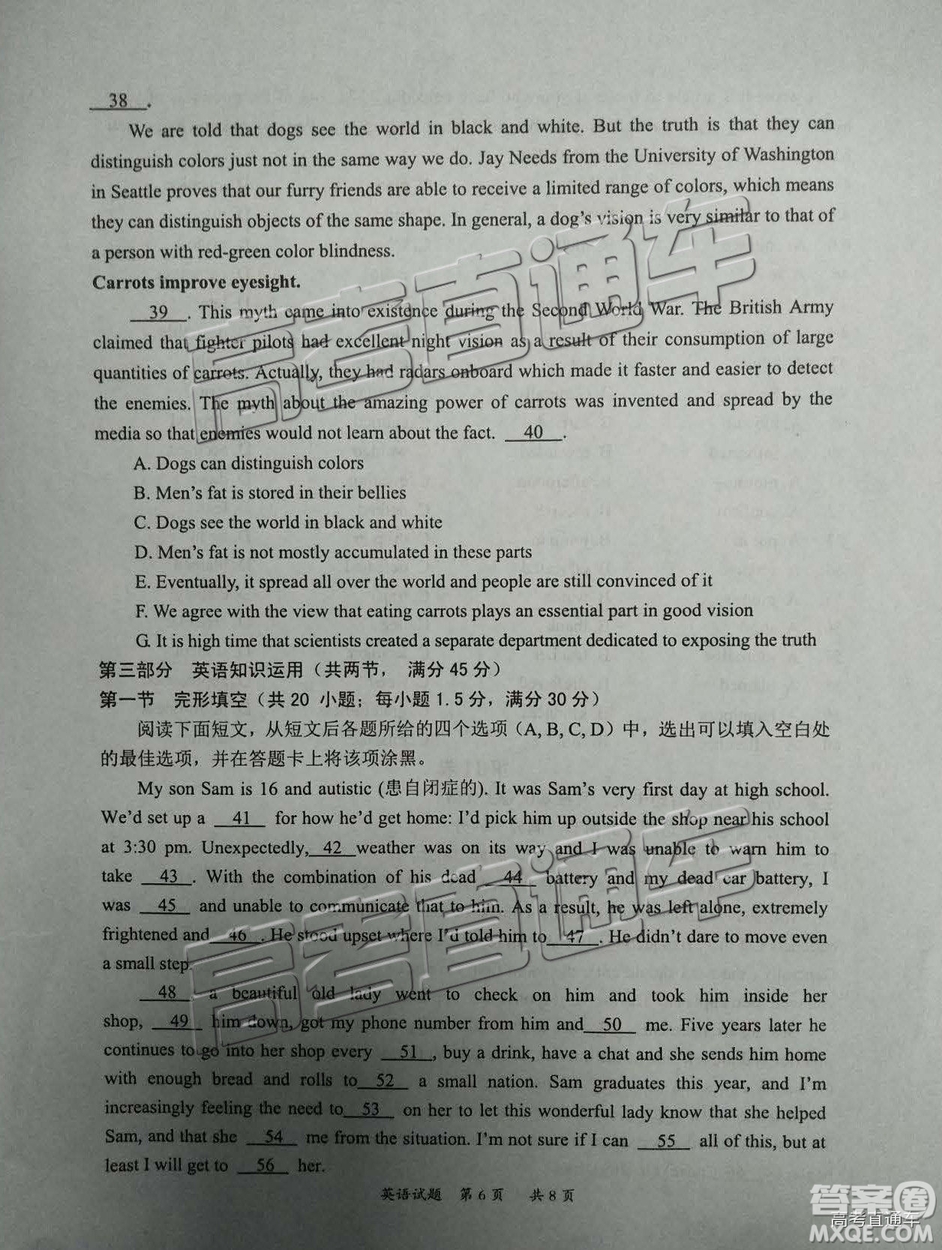 38 .
We are told that dogs see the world in black and white. But the truth is that they can
distinguish colors just not in the same way we do. Jay Needs from the University of Washington
in Seattle proves that our furry friends are able to receive a limited range of colors, which means
they can distinguish objects of the same shape. In general, a dog's vision is very similar to that of
a person with red-green color blindness.
Carrots improve eyesight.
39 . This myth came into existence during the Second World War. The British Army
claimed that fighter pilots had excellent night vision as a result of their consumption of large
quantities of carrots. Actually, they had radars onboard which made it faster and easier to detect
the enemies. The myth about the amazing power of carrots was invented and spread by the
media so that enemies would not learn about the fact. 40 .
A. Dogs can distinguish colors
B. Men's fat is stored in their bellies
C. Dogs see the world in black and white
D. Men's fat is not mostly accumulated in these parts
E. Eventually, it spread all over the world and people are still convinced of it
F. We agree with the view that eating carrots plays an essential part in good vision
G. It is high time that scientists created a separate department dedicated to exposing the truth
第三部分 英语知识运用（共两节， 满分 45 分）
第一节 完形填空（共 20 小题；每小题 1.5 分，满分 30 分）
阅读下面短文，从短文后各题所给的四个选项（A, B, C, D）中，选出可以填入空白处
的最佳选项，并在答题卡上将该项涂黑。
My son Sam is 16 and autistic (患自闭症的). It was Sam's very first day at high school.
We'd set up a 41 for how he'd get home: I'd pick him up outside the shop near his school
at 3:30 pm. Unexpectedly, 42 weather was on its way and I was unable to warn him to
take 43 . With the combination of his dead 44 battery and my dead car battery, I
was 45 and unable to communicate that to him. As a result, he was left alone, extremely
frightened and 46 . He stood upset where I'd told him to 47 . He didn't dare to move even
a small step.
48 a beautiful old lady went to check on him and took him inside her
shop, 49 him down, got my phone number from him and 50 me. Five years later he
continues to go into her shop every 51 , buy a drink, have a chat and she sends him home
with enough bread and rolls to 52 a small nation. Sam graduates this year, and I'm
increasingly feeling the need to 53 on her to let this wonderful lady know that she helped
Sam, and that she 54 me from the situation. I'm not sure if I can 55 all of this, but at
least I will get to 56 her.
英语试题 第 6 页 共 8 页
高考直通车
高考直通车
答案圈
高考直通车
MXQE.COM